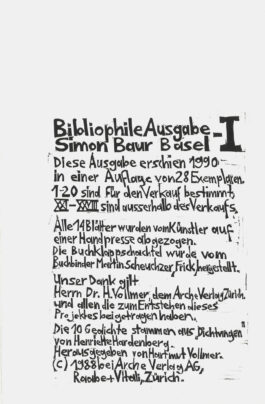 Bibliophile Ausgabe - I
Simon Baur Basel
Diese Ausgabe erschien 1990
in einer Auflage von 28 Exemplaren.
1-20 sind für den Verkauf bestimmt,
XXI-XXVIII sind ausserhalb des Verkaufs.
Alle 14 Blätter wurden vom Künstler auf
einer Handpresse abgezogen.
Die Buchklappschachtel wurde vom
Buchbinder Martin Scheuchzer, Frick hergestellt.
Unser Dank gilt
Herrn Dr. H. Vollmer, dem Arche Verlag Zürich
und allen die zum Entstehen dieses
Projektes beigetragen haben.
Die 10 Gedichte stammen aus Dichtungen
von Henriette Hardenberg.
Herausgegeben von Hartmut Vollmer.
(C) 1988 bei Arche Verlag AG,
Raabe + Vitali, Zürich.